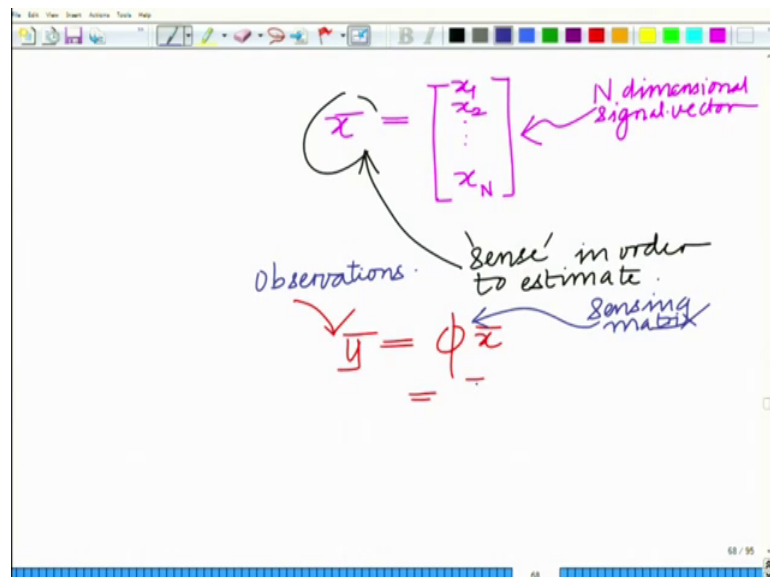 File Edit View Insert Actions Tools Help
x̄ = [x₁
x₂
⋮
x_N]
N dimensional
signal vector
'sense' in order
to estimate.
Observations.
sensing
matrix
ȳ = ϕ x̄
=
68 / 95
68